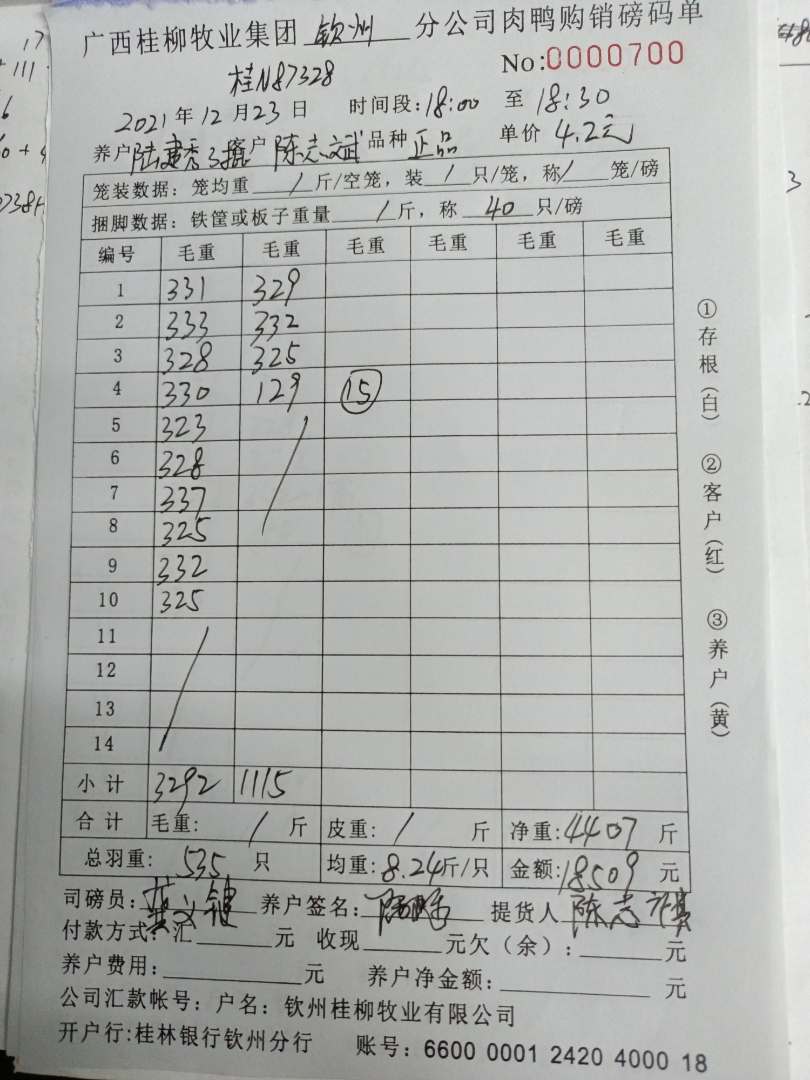 广西桂柳牧业集团 钦州 分公司肉鸭购销磅码单
桂N87328 No:0000700
2021年12月23日 时间段:18:00 至 18:30
养户 陆建秀 客户 陈志斌 品种 正品 单价 4.2元
笼装数据：笼均重 / 斤/空笼，装 / 只/笼，称 / 笼/磅
捆脚数据：铁筐或板子重量 / 斤，称 40 只/磅
编号 毛重 毛重 毛重 毛重 毛重 毛重
1 331 329
2 333 332
3 328 325
4 330 129 15
5 323
6 328
7 337
8 325
9 332
10 325
11
12
13
14
小计 3292 1115
合计 毛重: / 斤 皮重: / 斤 净重:4407 斤
总羽重: 535 只 均重:8.24斤/只 金额:18509 元
司磅员: 养户签名: 提货人 陈志
付款方式：汇 元 收现 元欠（余）: 元
养户费用: 元 养户净金额: 元
公司汇款帐号：户名：钦州桂柳牧业有限公司
开户行:桂林银行钦州分行 账号：6600 0001 2420 4000 18
①存根(白) ②客户(红) ③养户(黄)